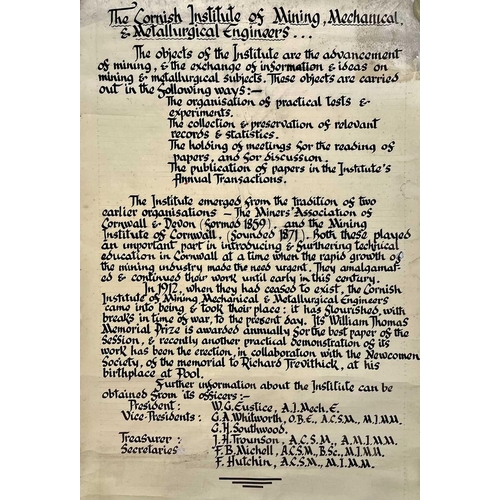 The Cornish Institute of Mining, Mechanical,
& Metallurgical Engineers...
The objects of the Institute are the advancement
of mining, & the exchange of information & ideas on
mining & metallurgical subjects. These objects are carried
out in the following ways:—
The organisation of practical tests &
experiments.
The collection & preservation of relevant
records & statistics.
The holding of meetings for the reading of
papers, and for discussion.
The publication of papers in the Institute's
Annual Transactions.
The Institute emerged from the tradition of two
earlier organisations — The Miners' Association of
Cornwall & Devon (formed 1859), and the Mining
Institute of Cornwall, (founded 1871). Both these played
an important part in introducing & furthering technical
education in Cornwall at a time when the rapid growth of
the mining industry made the need urgent. They amalgamat-
ed & continued their work until early in this century.
In 1912, when they had ceased to exist, the Cornish
Institute of Mining Mechanical & Metallurgical Engineers
came into being & took their place: it has flourished, with
breaks in time of war, to the present day. Its William Thomas
Memorial Prize is awarded annually for the best paper of the
Session, & recently another practical demonstration of its
work has been the erection, in collaboration with the Newcomen
Society, of the memorial to Richard Trevithick, at his
birthplace at Pool.
Further information about the Institute can be
obtained from its officers:—
President: W.G. Eustice, A.I.Mech.E.
Vice-Presidents: G.A. Whitworth, O.B.E., A.C.S.M., M.I.M.M.
C.H. Southwood.
Treasurer: J.H. Trounson, A.C.S.M., A.M.I.M.M.
Secretaries F.B. Michell, A.C.S.M., B.Sc., M.I.M.M.
F. Hutchin, A.C.S.M., M.I.M.M.